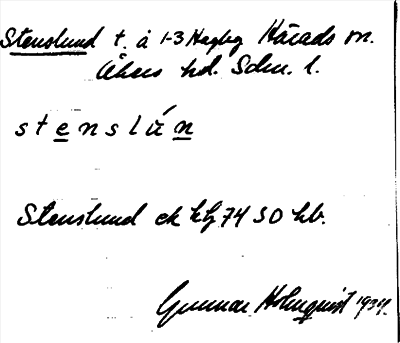 Stenslund t. å 1-3 Hagby Härads sn.
Åkers hd. Sdm. l.
stenslún
Stenslund ek klj 74 SO hb.
Gunnar Holmquist 1934.